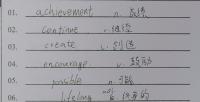 01. achievement n. 成绩
02. continue v. 继续
03. create v. 创造
04. encourage v. 鼓励
05. possible
06. lifelong adj 终身的